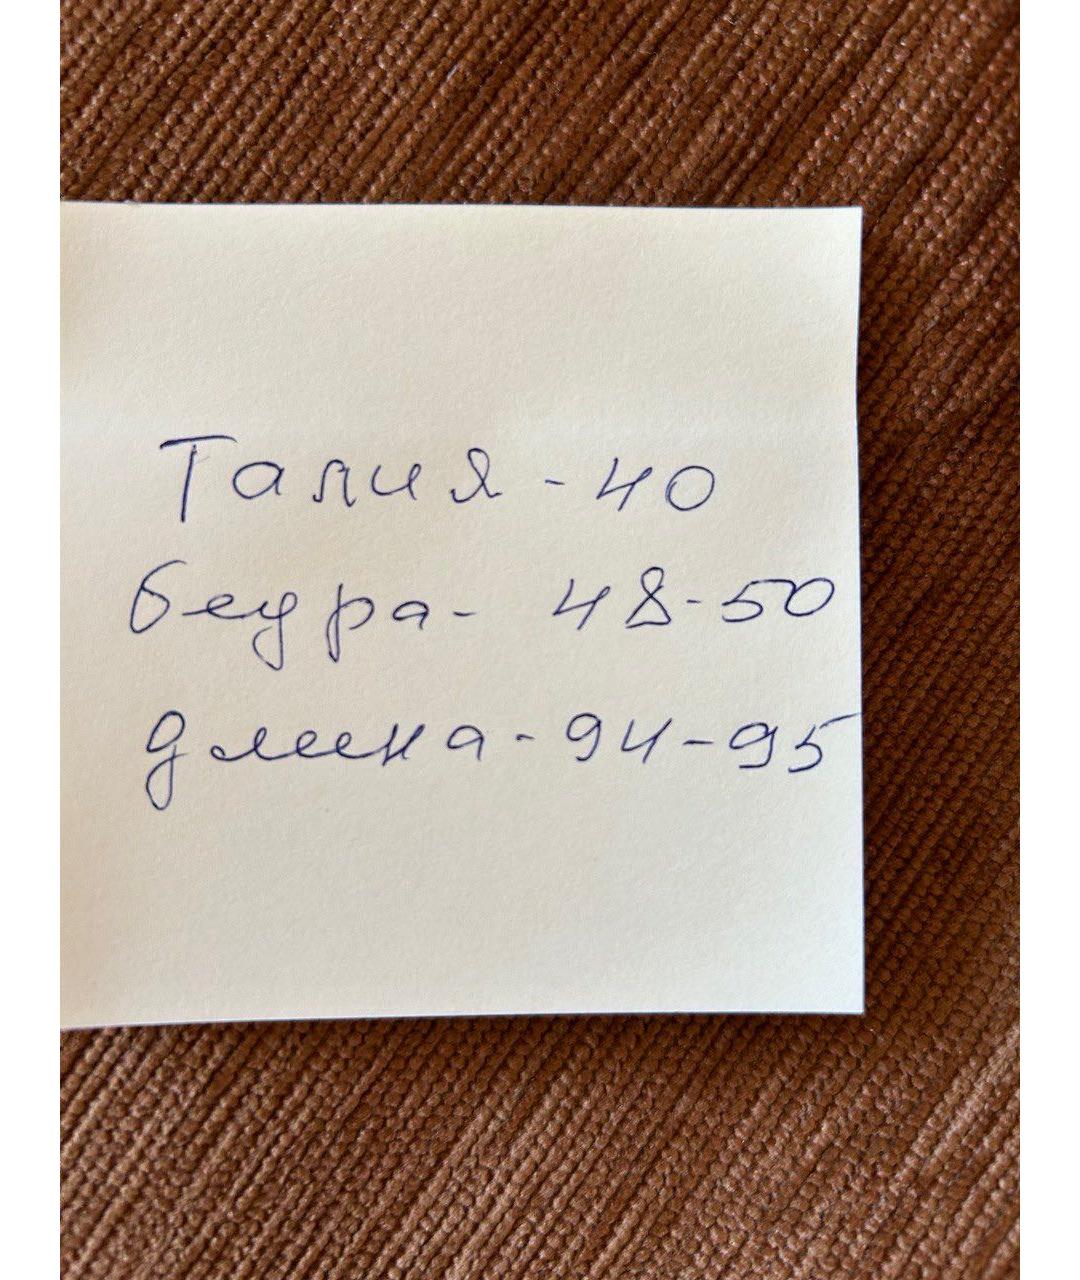 Талия - 40
бедра - 48-50
длина - 94-95